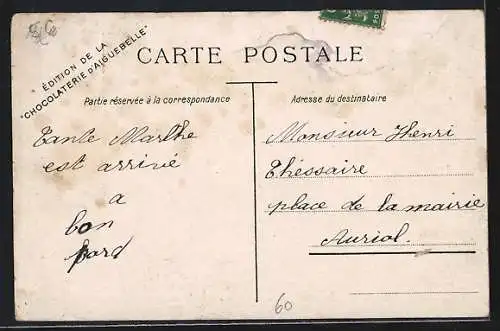 ÉDITION DE LA
"CHOCOLATERIE D'AIGUEBELLE"
CARTE POSTALE
Partie réservée à la correspondance
Adresse du destinataire
Tante Marthe
est arrivé
a
bon
pord
Monsieur Henri
Théssaire
place de la mairie
Auriol.
60